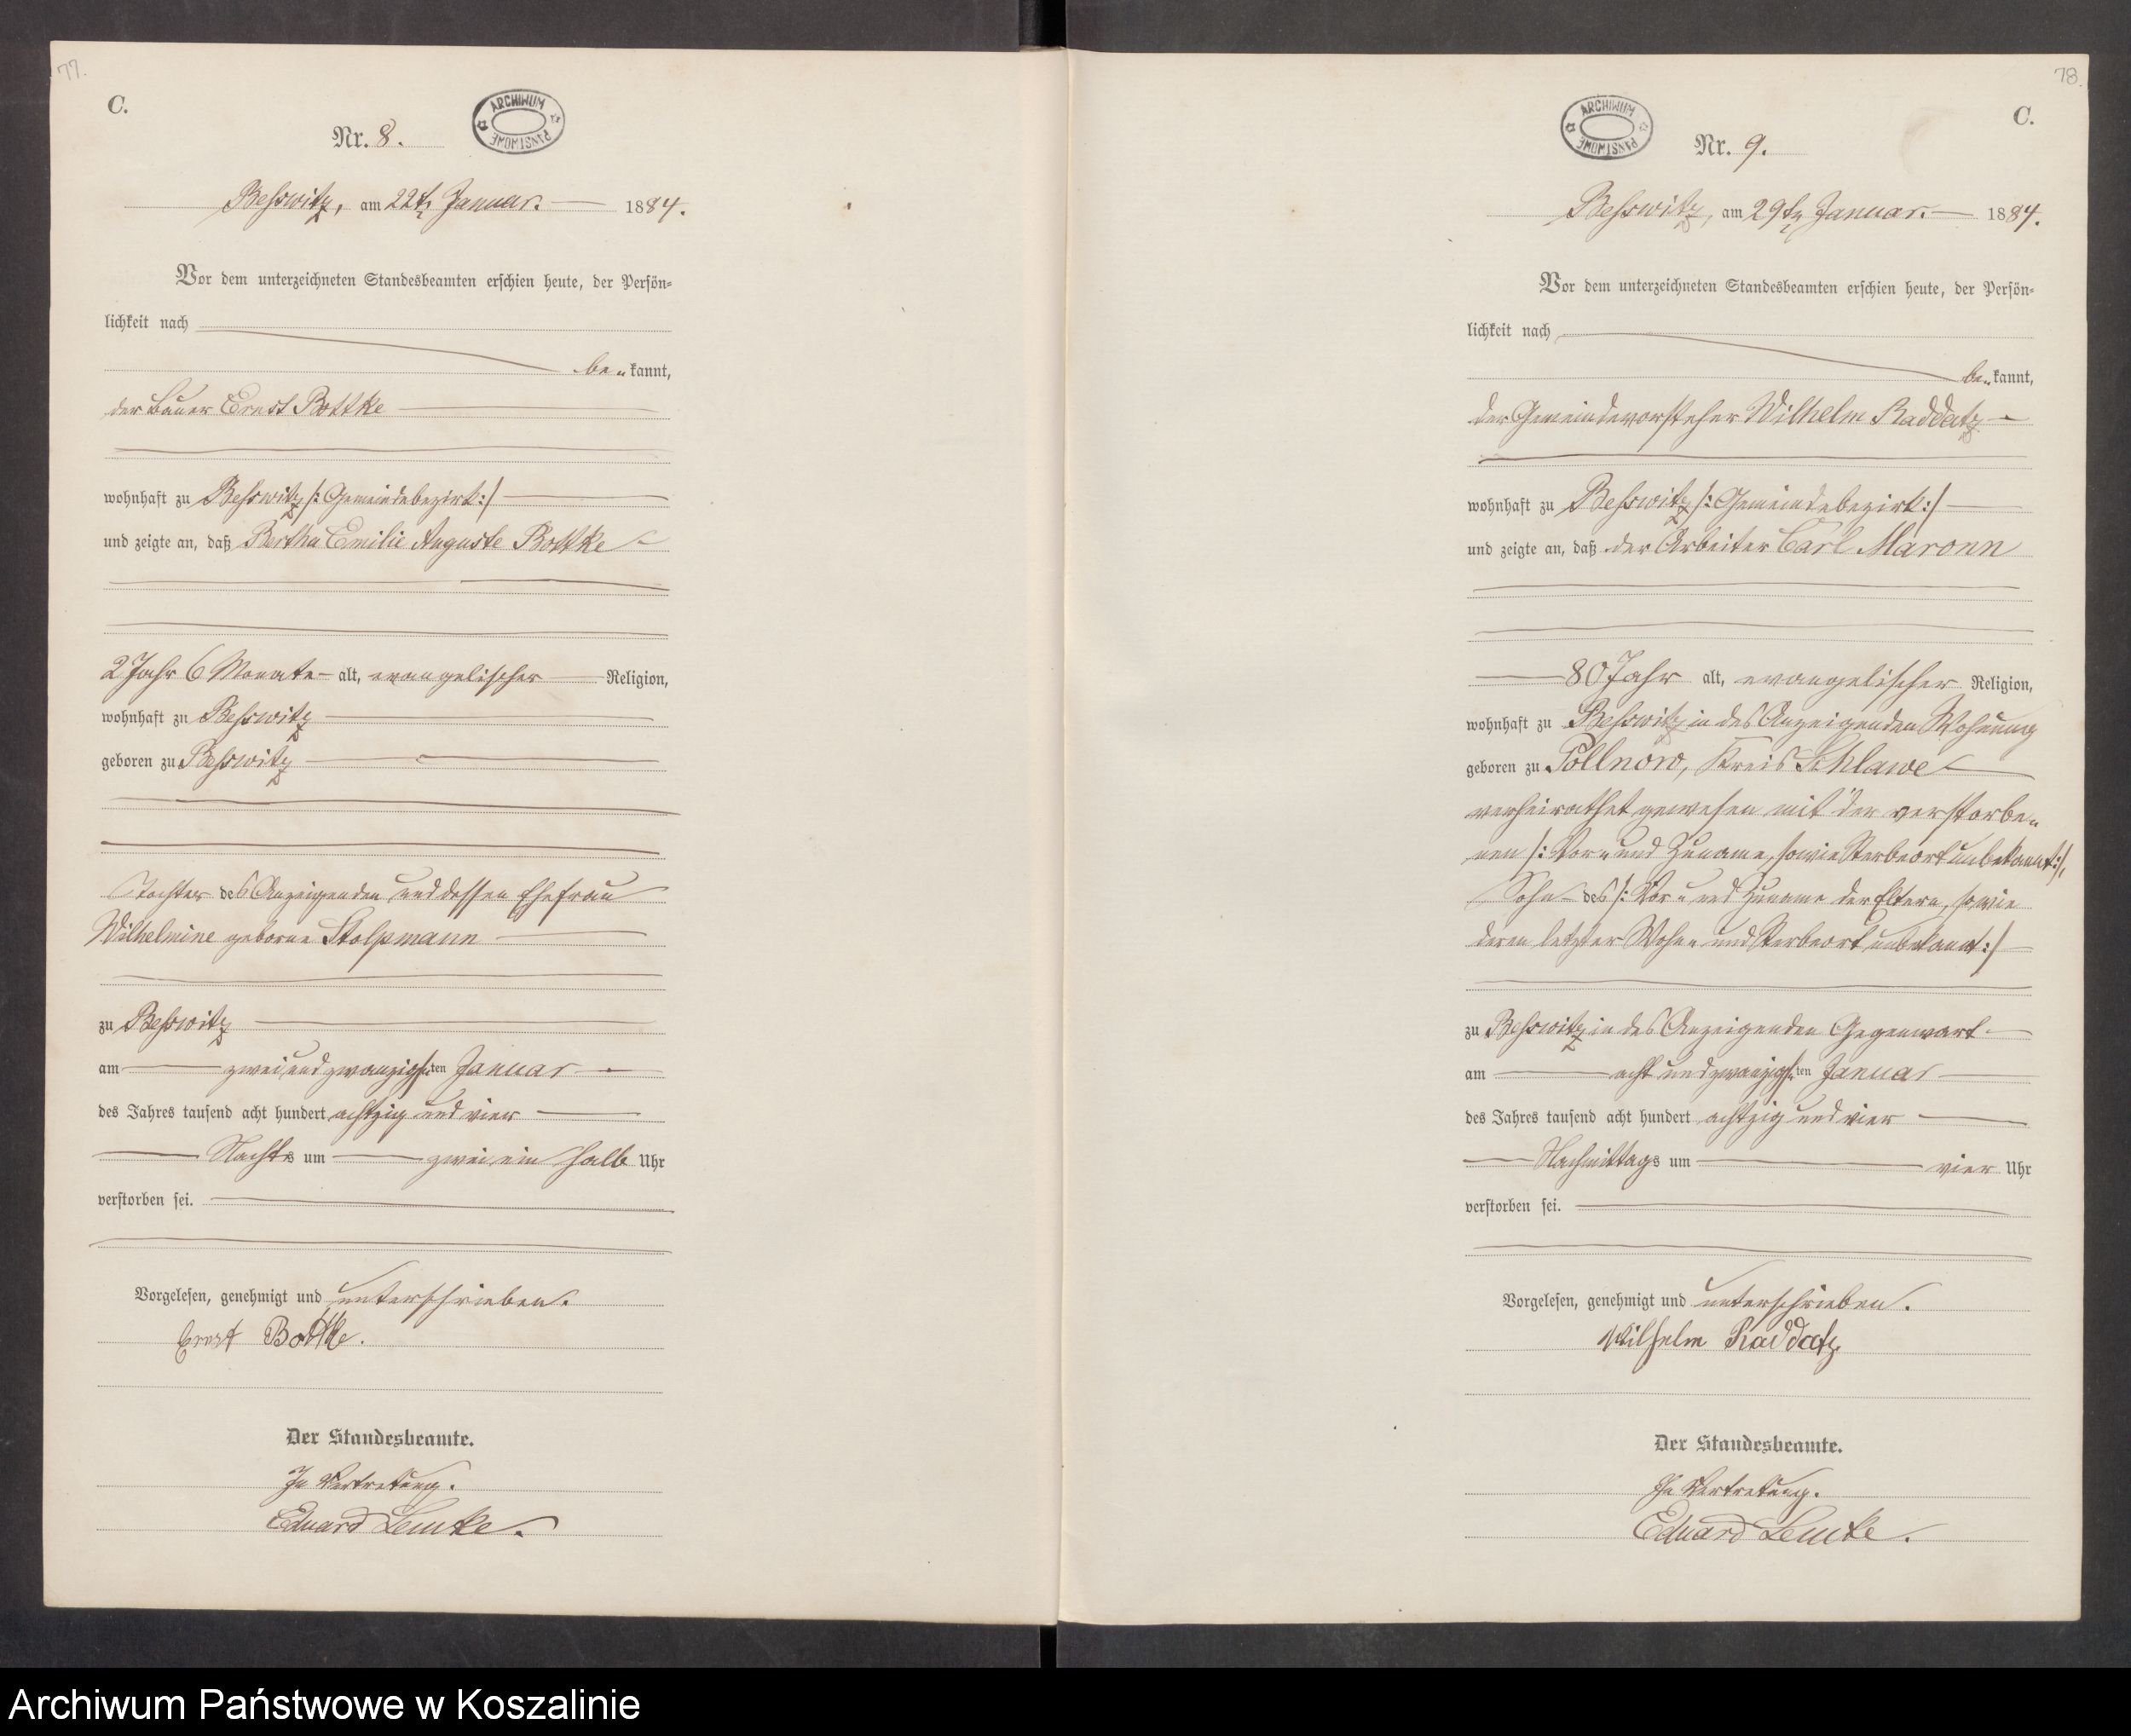 77.
C.
ARCHIWUM PAŃSTWOWE
Nr. 8.
Beßwitz, am 22t Januar. 1884.
Vor dem unterzeichneten Standesbeamten erschien heute, der Persön-
lichkeit nach
be-kannt,
der Bauer Ernst Bottke
wohnhaft zu Beßwitz /: Gemeindebezirk :/
und zeigte an, daß Bertha Emilie Auguste Bottke
2 Jahr 6 Monate alt, evangelischer Religion,
wohnhaft zu Beßwitz
geboren zu Beßwitz
Tochter des Anzeigenden und dessen Ehefrau
Wilhelmine geborne Stolpmann
zu Beßwitz
am zwei und zwanzigsten Januar
des Jahres tausend acht hundert achtzig und vier
Nachts um zwei ein halb Uhr
verstorben sei.
Vorgelesen, genehmigt und unterschrieben.
Ernst Bottke.
Der Standesbeamte.
In Vertretung.
Eduard Lemke.
78.
C.
ARCHIWUM PAŃSTWOWE
Nr. 9.
Beßwitz, am 29t Januar. 1884.
Vor dem unterzeichneten Standesbeamten erschien heute, der Persön-
lichkeit nach
be-kannt,
der Gemeindevorsteher Wilhelm Raddatz
wohnhaft zu Beßwitz /: Gemeindebezirk :/
und zeigte an, daß der Arbeiter Carl Maronn
80 Jahr alt, evangelischer Religion,
wohnhaft zu Beßwitz in des Anzeigenden Wohnung
geboren zu Pollnow, Kreis Schlawe
verheirathet gewesen mit der verstorbe-
nen /: Vor- und Zuname, sowie Sterbeort unbekannt :/,
Sohn des /: Vor- und Zuname der Eltern, sowie
deren letzter Wohn- und Sterbeort unbekannt :/
zu Beßwitz in des Anzeigenden Gegenwart
am acht und zwanzigsten Januar
des Jahres tausend acht hundert achtzig und vier
Nachmittags um vier Uhr
verstorben sei.
Vorgelesen, genehmigt und unterschrieben.
Wilhelm Raddatz
Der Standesbeamte.
In Vertretung.
Eduard Lemke.
Archiwum Państwowe w Koszalinie